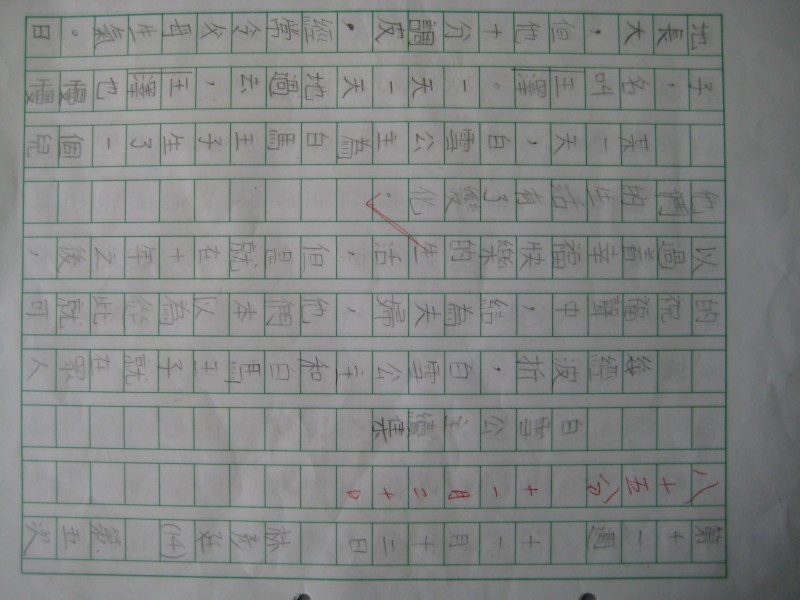 第十一週 十一月十二日 林彥廷(14) 第五次
八十五分 十一月二十日
白雪公主續集
幾經波折，白雪公主和白馬王子就在眾人
的祝福聲中，結為夫婦，他們本以為從此就可
以過著幸福快樂的生活，但是就在十年之後，
他們的生活有了變化。
某一天，白雪公主為白馬王子生了一個兒
子，名叫王澤。一天一天地過去，王澤也慢慢
地長大，但他十分調皮，經常令父母生氣。日